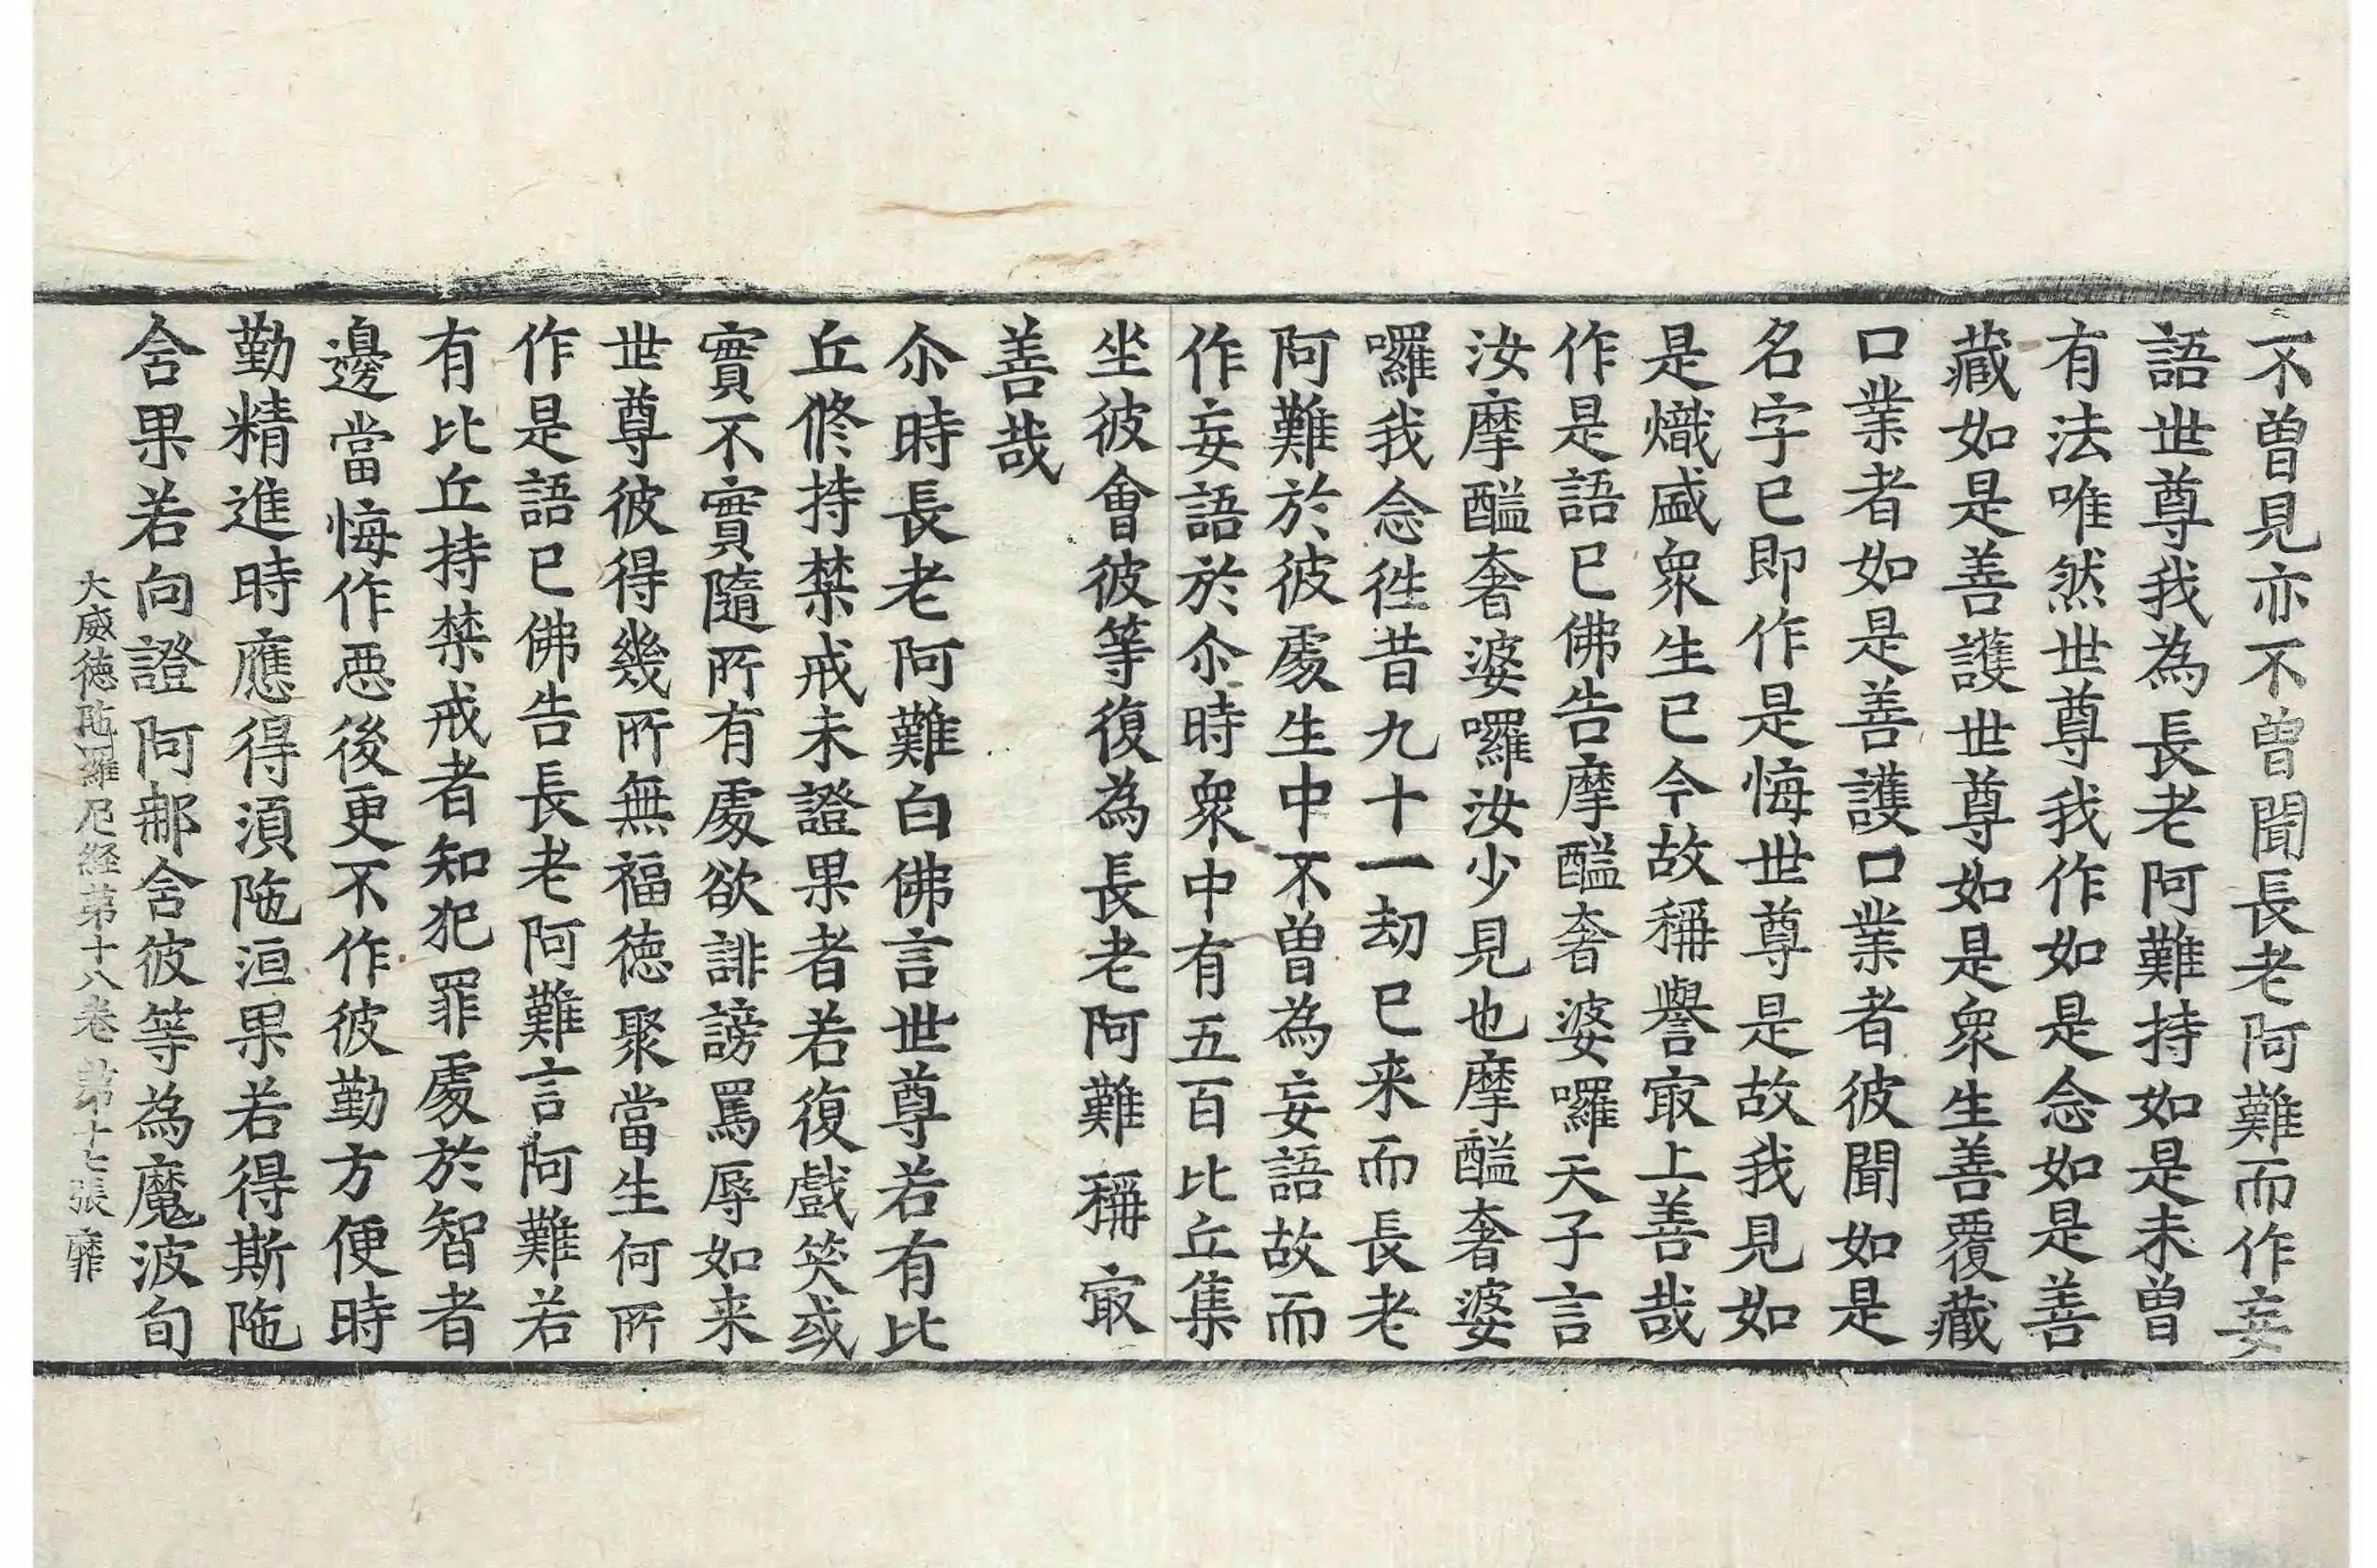 不曾見亦不曾聞長老阿難而作妄
語世尊我為長老阿難持如是未曾
有法唯然世尊我作如是念如是善
藏如是善護世尊如是衆生善覆藏
口業者如是善護口業者彼聞如是
名字已即作是悔世尊是故我見如
是熾盛衆生已今故稱譽㝡上善哉
作是語已佛告摩醯奢婆囉天子言
汝摩醯奢婆囉汝少見也摩醯奢婆
囉我念徃昔九十一劫已来而長老
阿難於彼處生中不曾為妄語故而
作妄語於尒時衆中有五百比丘集
坐彼會彼等復為長老阿難稱㝡
善哉
尒時長老阿難白佛言世尊若有比
丘修持禁戒未證果者若復戲笑或
實不實隨所有處欲誹謗罵辱如来
世尊彼得幾所無福德聚當生何所
作是語已佛告長老阿難言阿難若
有比丘持禁戒者知犯罪處於智者
邊當悔作惡後更不作彼勤方便時
勤精進時應得須陁洹果若得斯陁
含果若向證阿那含彼等為魔波旬
大威德陁羅尼経第十八卷 第十七張 靡